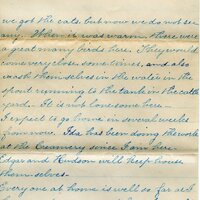 we got the cats, but now we do not see
any. When it was warm there were
a great many birds here. They would
come very close, sometimes, and also
wash themselves in the water in the
spout running to the tank in the cattle
yard. It is not lonesome here.
I expect to go home in several weeks
from now. Ida has been doing the work
at the Creamery since I am here.
Edgar and Hudson will keep house
themselves.
Every one at home is well so far as I